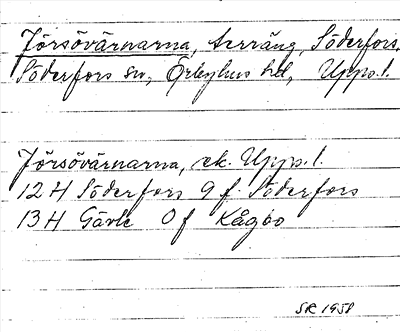 Jörsövärnarna, terräng, Söderfors,
Söderfors sn, Örbyhus hd, Upps.l.
Jörsövärnarna, ek. Upps.l.
12 H Söderfors 9 f. Söderfors
13 H Gävle 0 f Kågbo
SR 1958